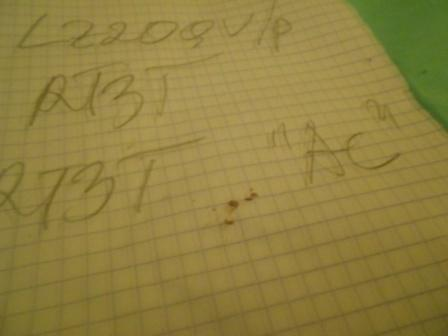 L220QV/P
RT3T
RT3T
"AC"